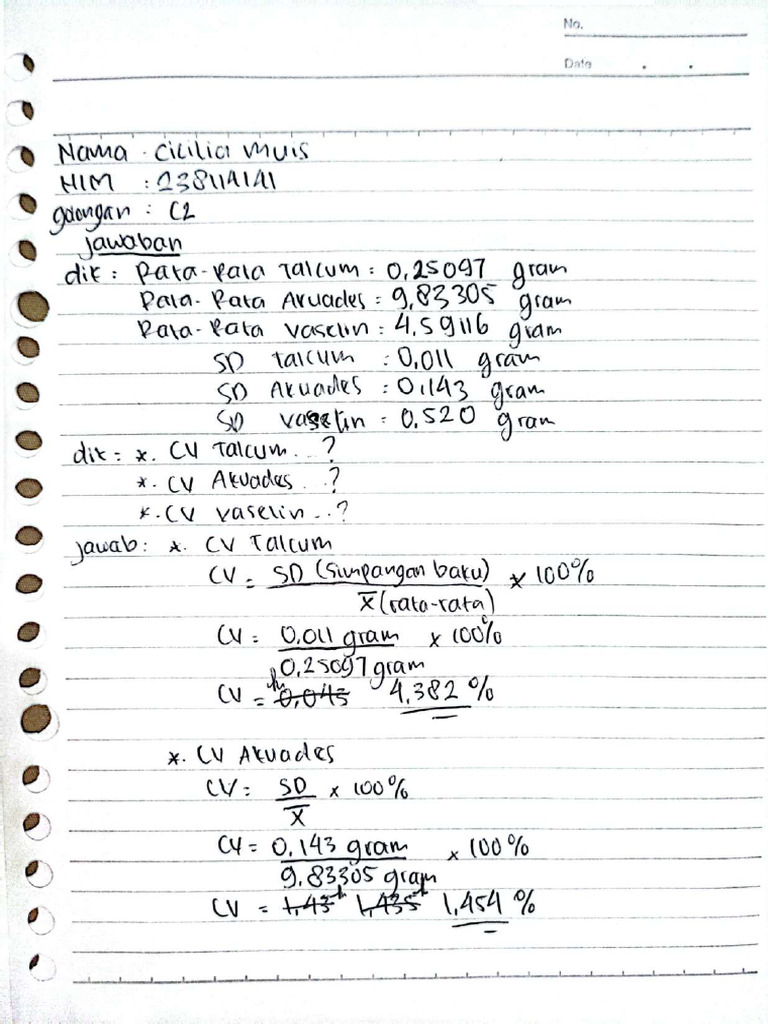 No.
Date
Nama : Cicilia Muis
NIM : 238114141
golongan : C2
jawaban
dik : Rata-Rata Talcum : 0,25097 gram
Rata-Rata Akuades : 9,83305 gram
Rata-Rata Vaselin : 4,59116 gram
SD talcum : 0,011 gram
SD Akuades : 0,143 gram
SD vaselin : 0,520 gram
dit : *. CV Talcum...?
*. CV Akuades...?
*. CV vaselin...?
jawab : *. CV Talcum
CV = SD (Simpangan baku) x 100%
x̅ (rata-rata)
CV = 0,011 gram x 100%
0,25097 gram
CV = 0,043 4,382 %
*. CV Akuades
CV = SD x 100%
x̅
CV = 0,143 gram x 100%
9,83305 gram
CV = 1,43 1,435 1,454 %